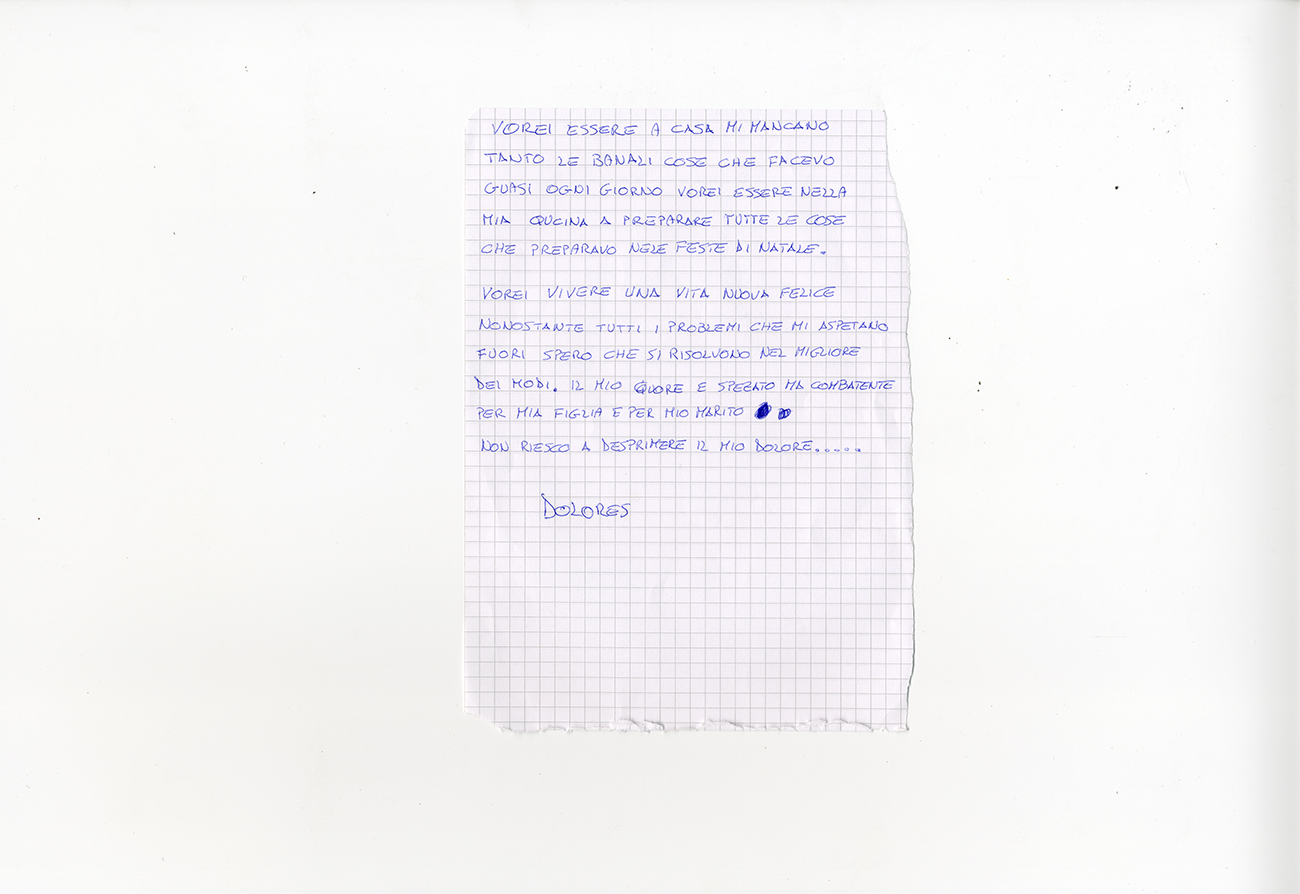 VOREI ESSERE A CASA MI MANCANO
TANTO LE BANALI COSE CHE FACEVO
GUASI OGNI GIORNO VOREI ESSERE NELLA
MIA QUCINA A PREPARARE TUTTE LE COSE
CHE PREPARAVO NELE FESTE DI NATALE.
VOREI VIVERE UNA VITA NUOVA FELICE
NONOSTANTE TUTTI I PROBLEMI CHE MI ASPETANO
FUORI SPERO CHE SI RISOLVONO NEL MIGLIORE
DEI MODI. IL MIO QUORE E SPEZATO MA COMBATENTE
PER MIA FIGLIA E PER MIO MARITO
NON RIESCO A DESPRIMERE IL MIO DOLORE.....
DOLORES